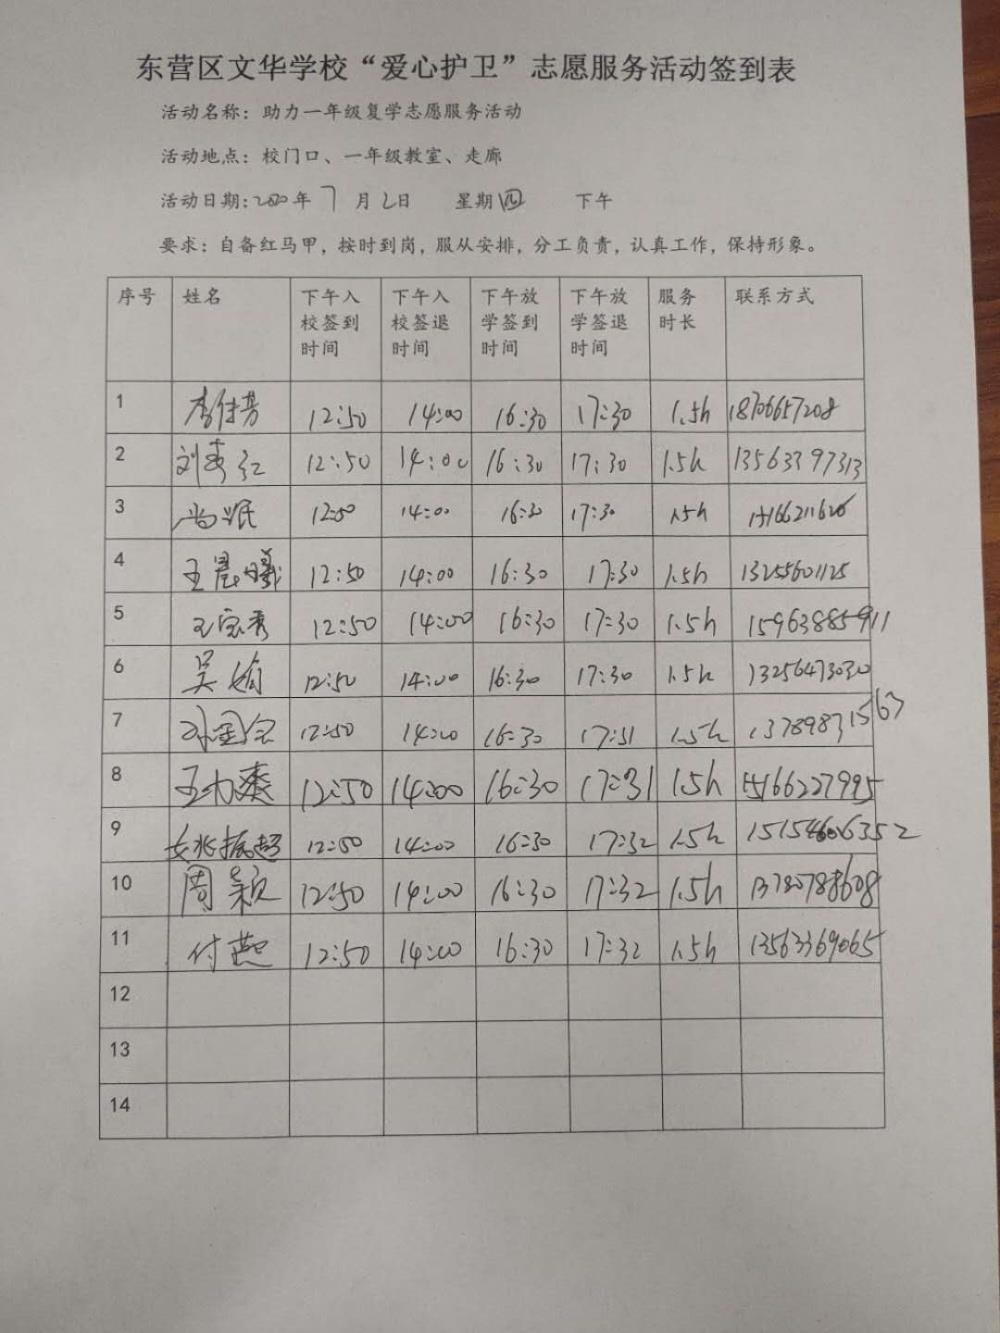 东营区文华学校“爱心护卫”志愿服务活动签到表
活动名称：助力一年级复学志愿服务活动
活动地点：校门口、一年级教室、走廊
活动日期：2020年 7 月 2日 星期四 下午
要求：自备红马甲，按时到岗，服从安排，分工负责，认真工作，保持形象。
序号 姓名 下午入校签到时间 下午入校签退时间 下午放学签到时间 下午放学签退时间 服务时长 联系方式
1 12:50 14:00 16:30 17:30 1.5h 18706657208
2 刘秀红 12:50 14:00 16:30 17:30 1.5h 13563397313
3 12:50 14:00 16:30 17:30 1.5h
4 王晨曦 12:50 14:00 16:30 17:30 1.5h 13255601125
5 王宝秀 12:50 14:00 16:30 17:30 1.5h 15963885911
6 吴娟 12:50 14:00 16:30 17:30 1.5h 13256473030
7 12:50 14:00 16:30 17:31 1.5h 13789831567
8 12:50 14:00 16:30 17:31 1.5h 15166227995
9 姚振超 12:50 14:00 16:30 17:32 1.5h
10 周颖 12:50 14:00 16:30 17:32 1.5h 13780788608
11 付燕 12:50 14:00 16:30 17:32 1.5h 13563369065
12
13
14